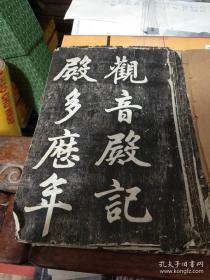 觀音殿記
殿多歷年
孔夫子旧书网